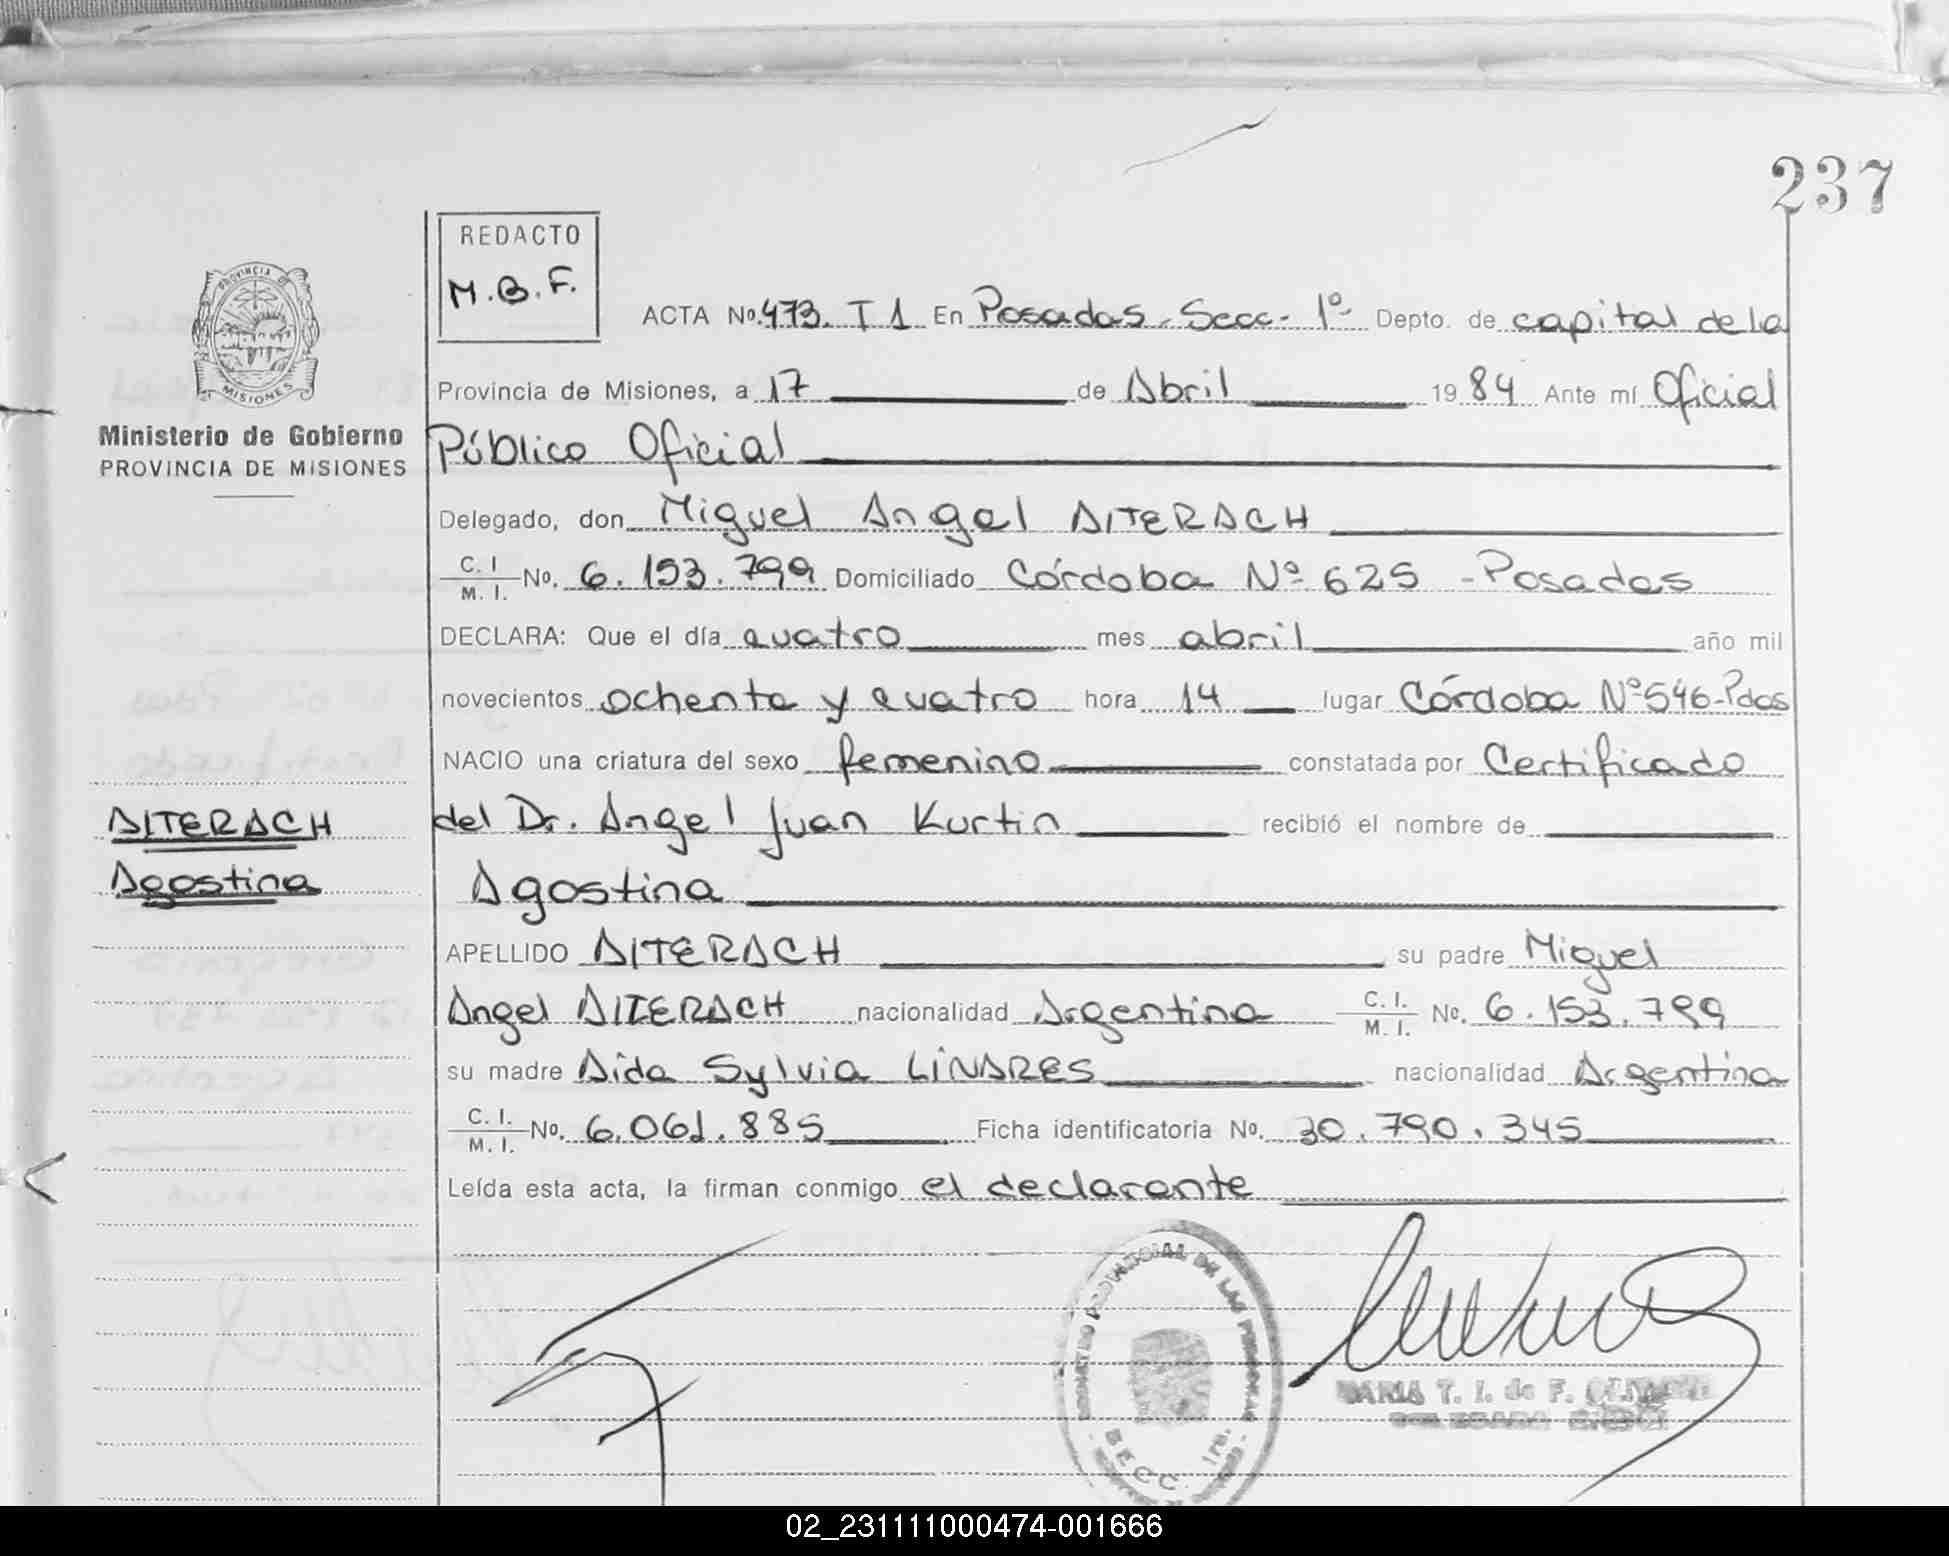 237
REDACTO
M.B.F.
PROVINCIA DE
MISIONES
Ministerio de Gobierno
PROVINCIA DE MISIONES
ACTA Nº. 473. T 1 En Posadas. Secc. 1º Depto. de capital de la
Provincia de Misiones, a 17 de Abril 1984 Ante mí Oficial
Público Oficial
Delegado, don Miguel Angel AITERACH
C. I. / M. I. Nº. 6.153.799 Domiciliado Córdoba Nº 625 - Posadas
DECLARA: Que el día cuatro mes abril año mil
novecientos ochenta y cuatro hora 14 lugar Córdoba Nº 546-Pdas
NACIO una criatura del sexo femenino constatada por Certificado
del Dr. Angel Juan Kurtin recibió el nombre de
Agostina
AITERACH
Agostina
APELLIDO AITERACH su padre Miguel
Angel AITERACH nacionalidad Argentina C. I. / M. I. Nº. 6.153.799
su madre Aida Sylvia LINARES nacionalidad Argentina
C. I. / M. I. Nº. 6.061.885 Ficha identificatoria Nº. 30.790.345
Leída esta acta, la firman conmigo el declarante
PROVINCIAL DE LAS PERSONAS
SECC. 1ra.
MARIA T. I. de F.
02_231111000474-001666